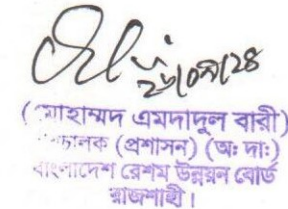 ২৬/০৯/২৪
(মোহাম্মদ এমদাদুল বারী)
পরিচালক (প্রশাসন) (অঃ দাঃ)
বাংলাদেশ রেশম উন্নয়ন বোর্ড
রাজশাহী।